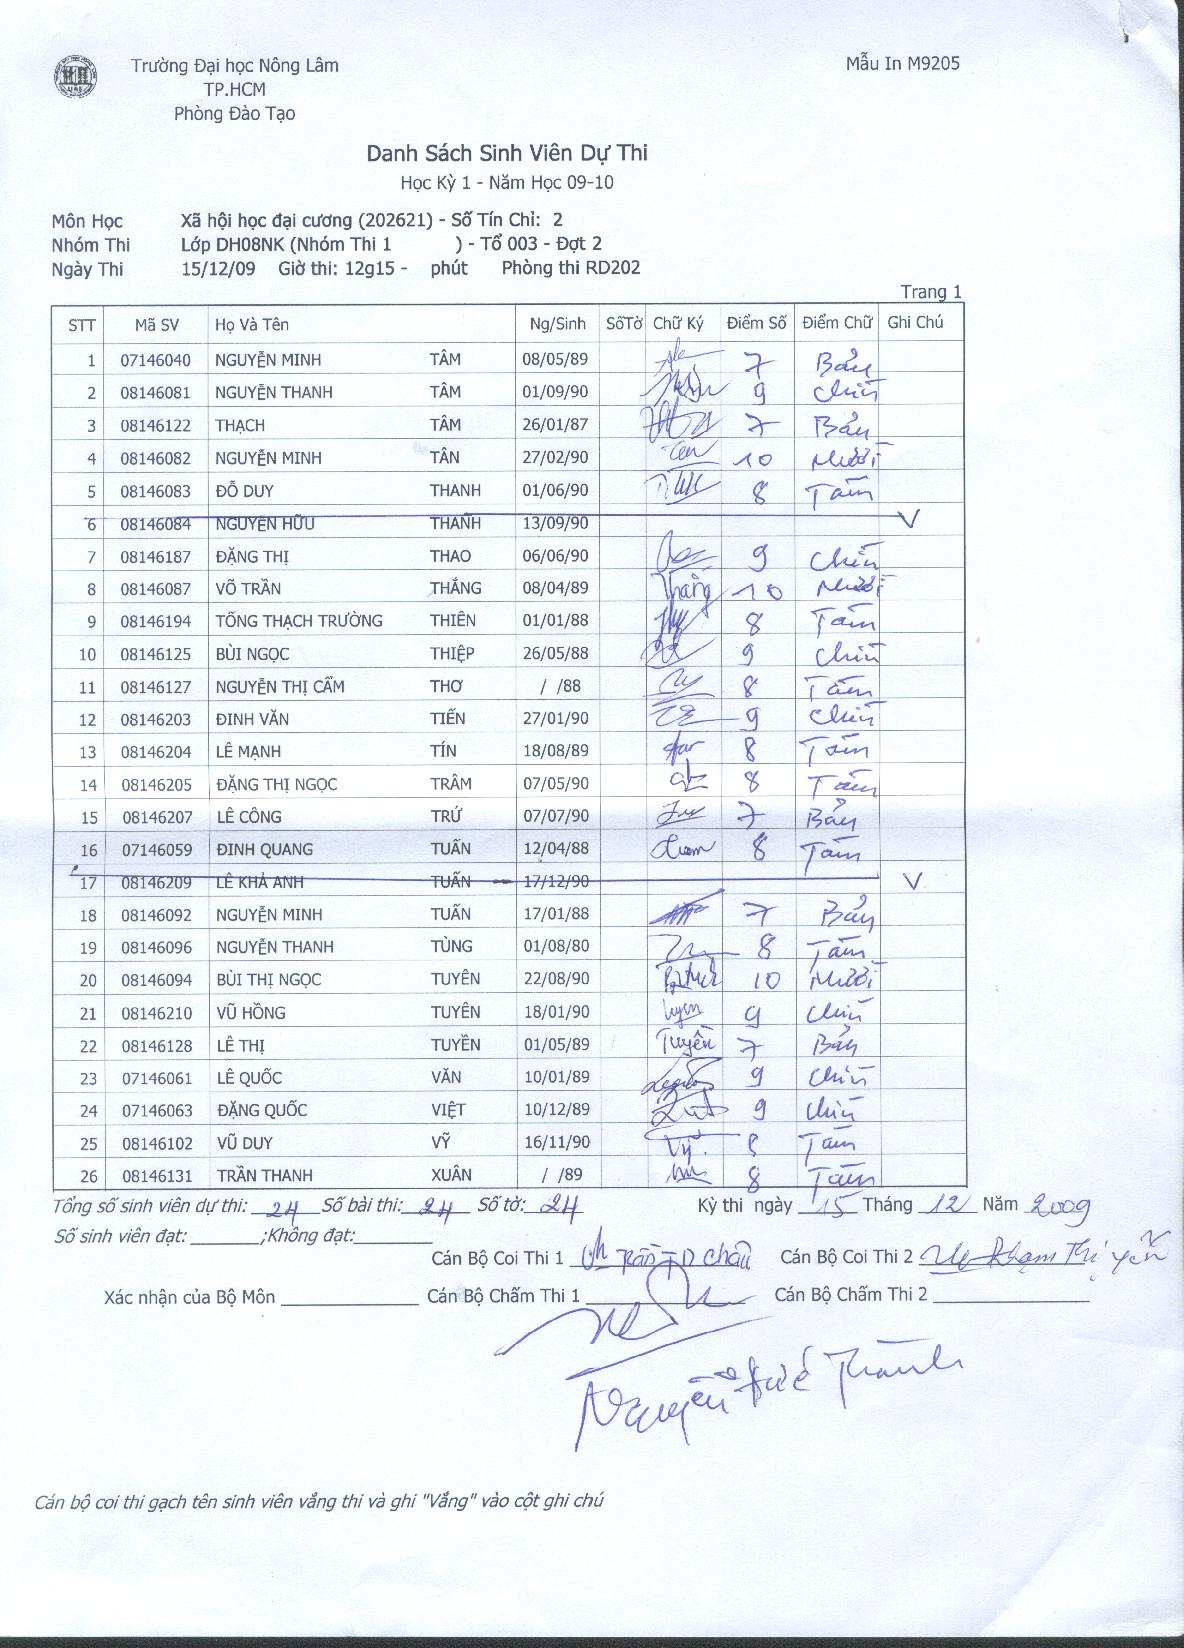 Trường Đại học Nông Lâm
TP.HCM
Phòng Đào Tạo
Mẫu In M9205
Danh Sách Sinh Viên Dự Thi
Học Kỳ 1 - Năm Học 09-10
Môn Học Xã hội học đại cương (202621) - Số Tín Chỉ: 2
Nhóm Thi Lớp DH08NK (Nhóm Thi 1 ) - Tổ 003 - Đợt 2
Ngày Thi 15/12/09 Giờ thi: 12g15 - phút Phòng thi RD202
Trang 1
STT Mã SV Họ Và Tên Ng/Sinh SốTờ Chữ Ký Điểm Số Điểm Chữ Ghi Chú
1 07146040 NGUYỄN MINH TÂM 08/05/89 7 Bảy
2 08146081 NGUYỄN THANH TÂM 01/09/90 9 Chín
3 08146122 THẠCH TÂM 26/01/87 7 Bảy
4 08146082 NGUYỄN MINH TÂN 27/02/90 10 Mười
5 08146083 ĐỖ DUY THANH 01/06/90 8 Tám
6 08146084 NGUYỄN HỮU THANH 13/09/90 V
7 08146187 ĐẶNG THỊ THAO 06/06/90 9 Chín
8 08146087 VÕ TRẦN THẮNG 08/04/89 Thắng 10 Mười
9 08146194 TỐNG THẠCH TRƯỜNG THIÊN 01/01/88 8 Tám
10 08146125 BÙI NGỌC THIỆP 26/05/88 9 Chín
11 08146127 NGUYỄN THỊ CẨM THƠ / /88 8 Tám
12 08146203 ĐINH VĂN TIẾN 27/01/90 9 Chín
13 08146204 LÊ MẠNH TÍN 18/08/89 8 Tám
14 08146205 ĐẶNG THỊ NGỌC TRÂM 07/05/90 8 Tám
15 08146207 LÊ CÔNG TRỨ 07/07/90 7 Bảy
16 07146059 ĐINH QUANG TUẤN 12/04/88 8 Tám
17 08146209 LÊ KHẢ ANH TUẤN 17/12/90 V
18 08146092 NGUYỄN MINH TUẤN 17/01/88 7 Bảy
19 08146096 NGUYỄN THANH TÙNG 01/08/80 8 Tám
20 08146094 BÙI THỊ NGỌC TUYÊN 22/08/90 10 Mười
21 08146210 VŨ HỒNG TUYÊN 18/01/90 9 Chín
22 08146128 LÊ THỊ TUYỀN 01/05/89 Tuyền 7 Bảy
23 07146061 LÊ QUỐC VĂN 10/01/89 9 Chín
24 07146063 ĐẶNG QUỐC VIỆT 10/12/89 9 Chín
25 08146102 VŨ DUY VỸ 16/11/90 Vỹ 8 Tám
26 08146131 TRẦN THANH XUÂN / /89 8 Tám
Tổng số sinh viên dự thi: 24 Số bài thi: 24 Số tờ: 24 Kỳ thi ngày 15 Tháng 12 Năm 2009
Số sinh viên đạt: ;Không đạt:
Cán Bộ Coi Thi 1 Trần T D Châu Cán Bộ Coi Thi 2 Phạm Thị Yến
Xác nhận của Bộ Môn Cán Bộ Chấm Thi 1 Cán Bộ Chấm Thi 2
Nguyễn Đức Thành
Cán bộ coi thi gạch tên sinh viên vắng thi và ghi "Vắng" vào cột ghi chú